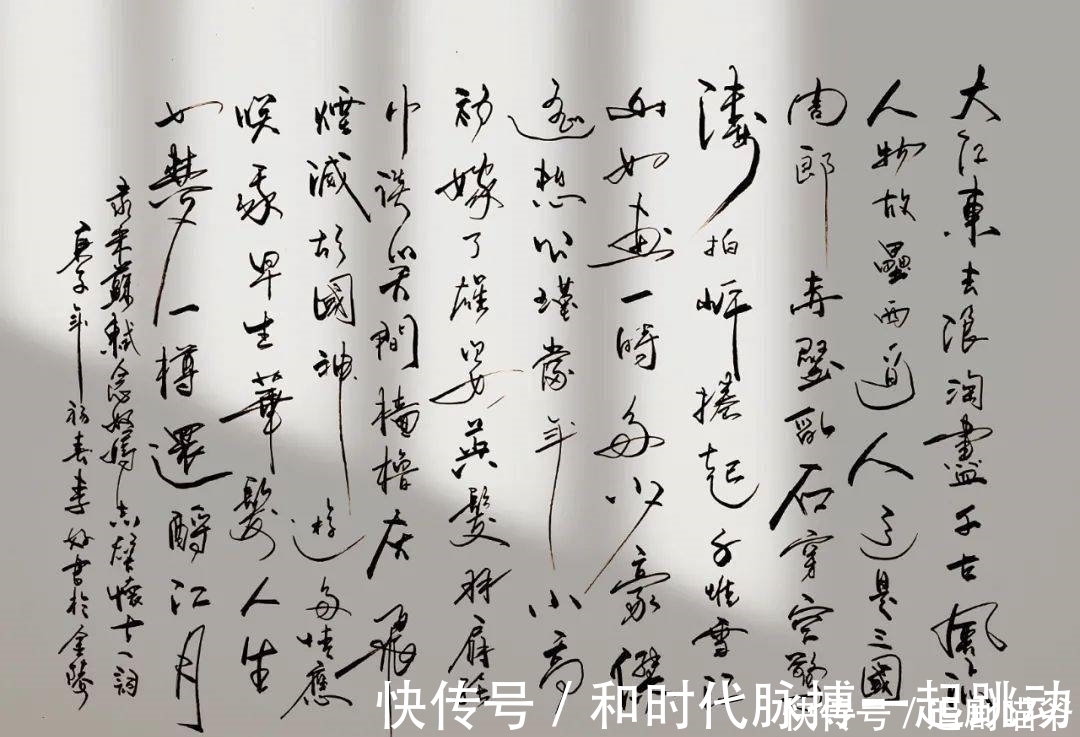 大江東去浪淘盡千古風流
人物故壘西邊人道是三國
周郎赤壁亂石穿空驚
濤拍岸捲起千堆雪江
山如畫一時多少豪傑
遙想公瑾當年小喬
初嫁了雄姿英發羽扇綸
巾談笑間檣櫓灰飛
煙滅故國神遊多情應
笑我早生華髮人生
如夢一樽還酹江月
录宋蘇軾念奴嬌赤壁懷古一詞
庚子年初春李好書於金陵
快传号 / 和时代脉搏一起跳动
快传号 /